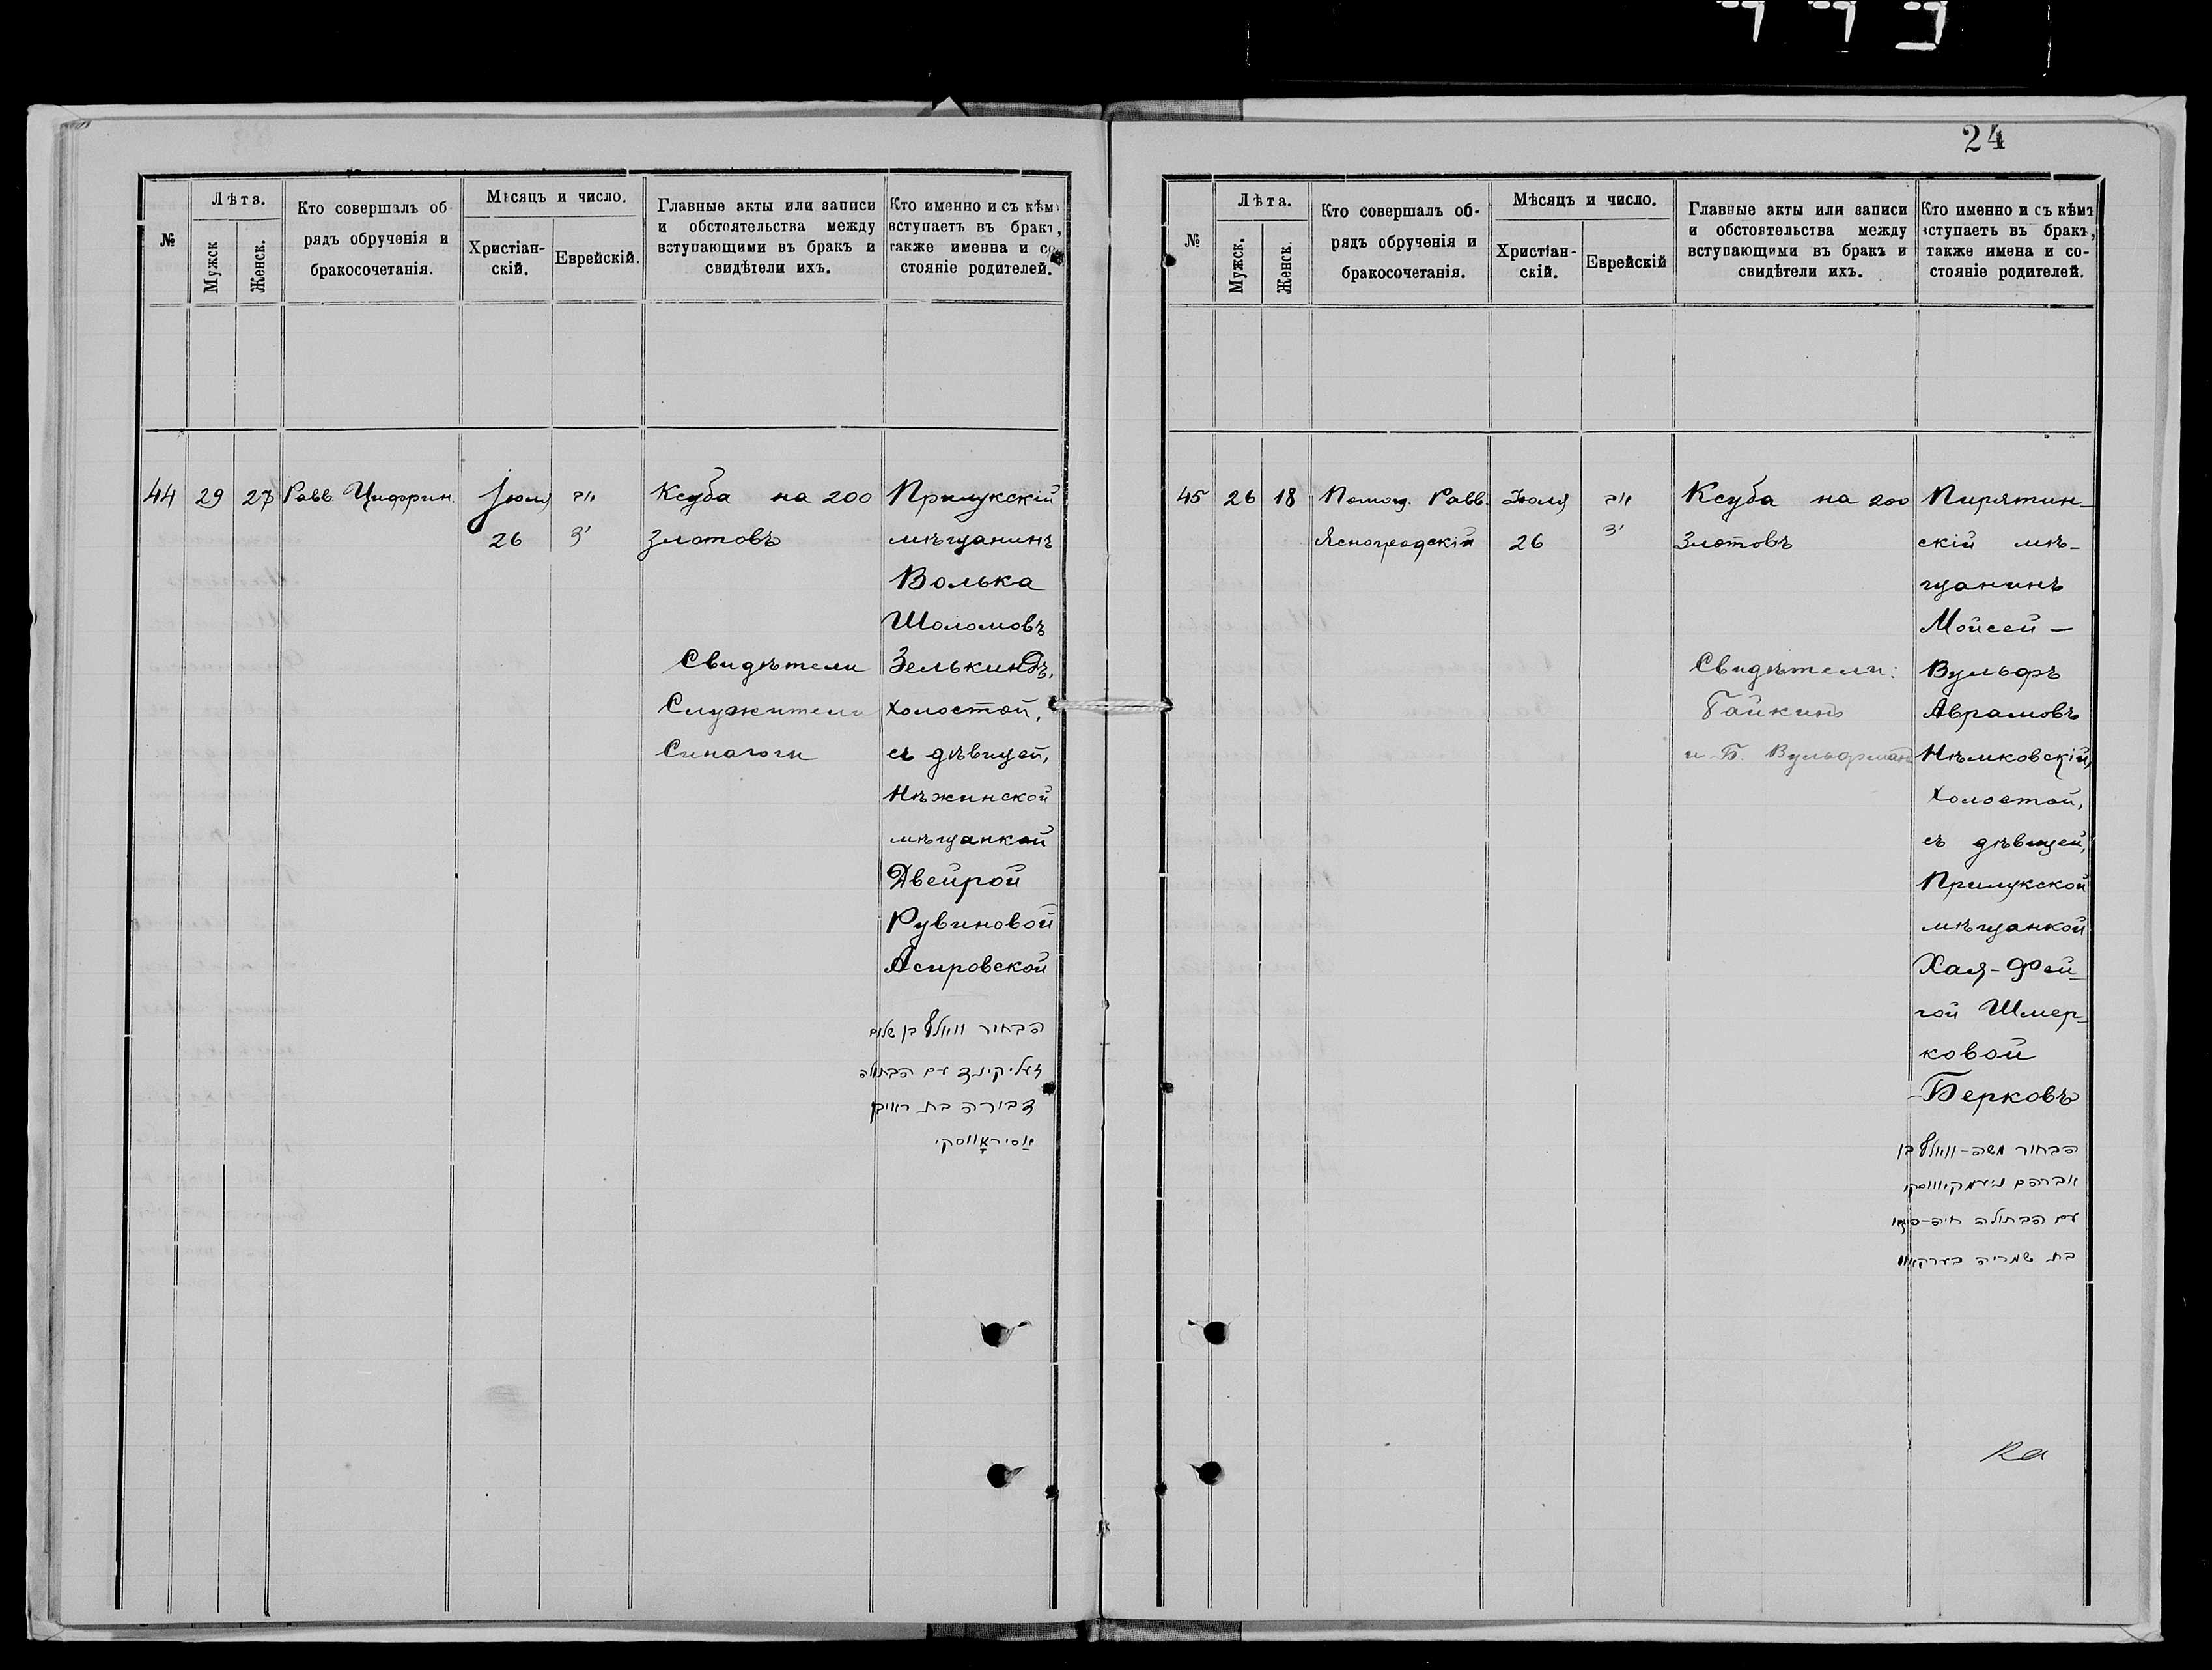 24
№
Лѣта.
Мужск
Женск.
Кто совершалъ об-
рядъ обрученія и
бракосочетанія.
Мѣсяцъ и число.
Христіан-
скій.
Еврейскій.
Главные акты или записи
и обстоятельства между
вступающими въ бракъ и
свидѣтели ихъ.
Кто именно и съ кѣмъ
вступаетъ въ бракъ,
также имена и со-
стояніе родителей.
44 29 27 Равв. Цифрин. Іюля אב Ксуба на 200 Прилукскій
26 ג' злотовъ мѣщанинъ
Волька
Шоломовъ
Свидѣтели Зелькиндъ,
Служители холостой,
Синагоги съ дѣвицей,
Нѣжинской
мѣщанкой
Двейрой
Рувиновой
Асировской
הבחור וואלף בן שלום
זעליקינד עם הבתולה
דבורה בת ראובן
אַסיראָווסקי
№
Лѣта.
Мужск.
Женск.
Кто совершалъ об-
рядъ обрученія и
бракосочетанія.
Мѣсяцъ и число.
Христіан-
скій.
Еврейскій
Главные акты или записи
и обстоятельства между
вступающими въ бракъ и
свидѣтели ихъ.
Кто именно и съ кѣмъ
вступаетъ въ бракъ,
также имена и со-
стояніе родителей.
45 26 18 Помощ. Равв. Іюля אב Ксуба на 200 Пирятин-
Ясногродскій 26 ג' злотовъ скій мѣ-
щанинъ
Мойсей-
Свидѣтели: Вульфъ
Гайкинъ Аврамовъ
и Б. Вульфманъ Нѣмковскій,
холостой,
съ дѣвицей,
Прилукской
мѣщанкой
Хая-Фей-
гой Шмер-
ковой
Берковъ
הבחור משה-וואלף בן
אברהם ניעמקיווסקי
עם הבתולה חיה-פייגא
בת שמריה בערקאוו